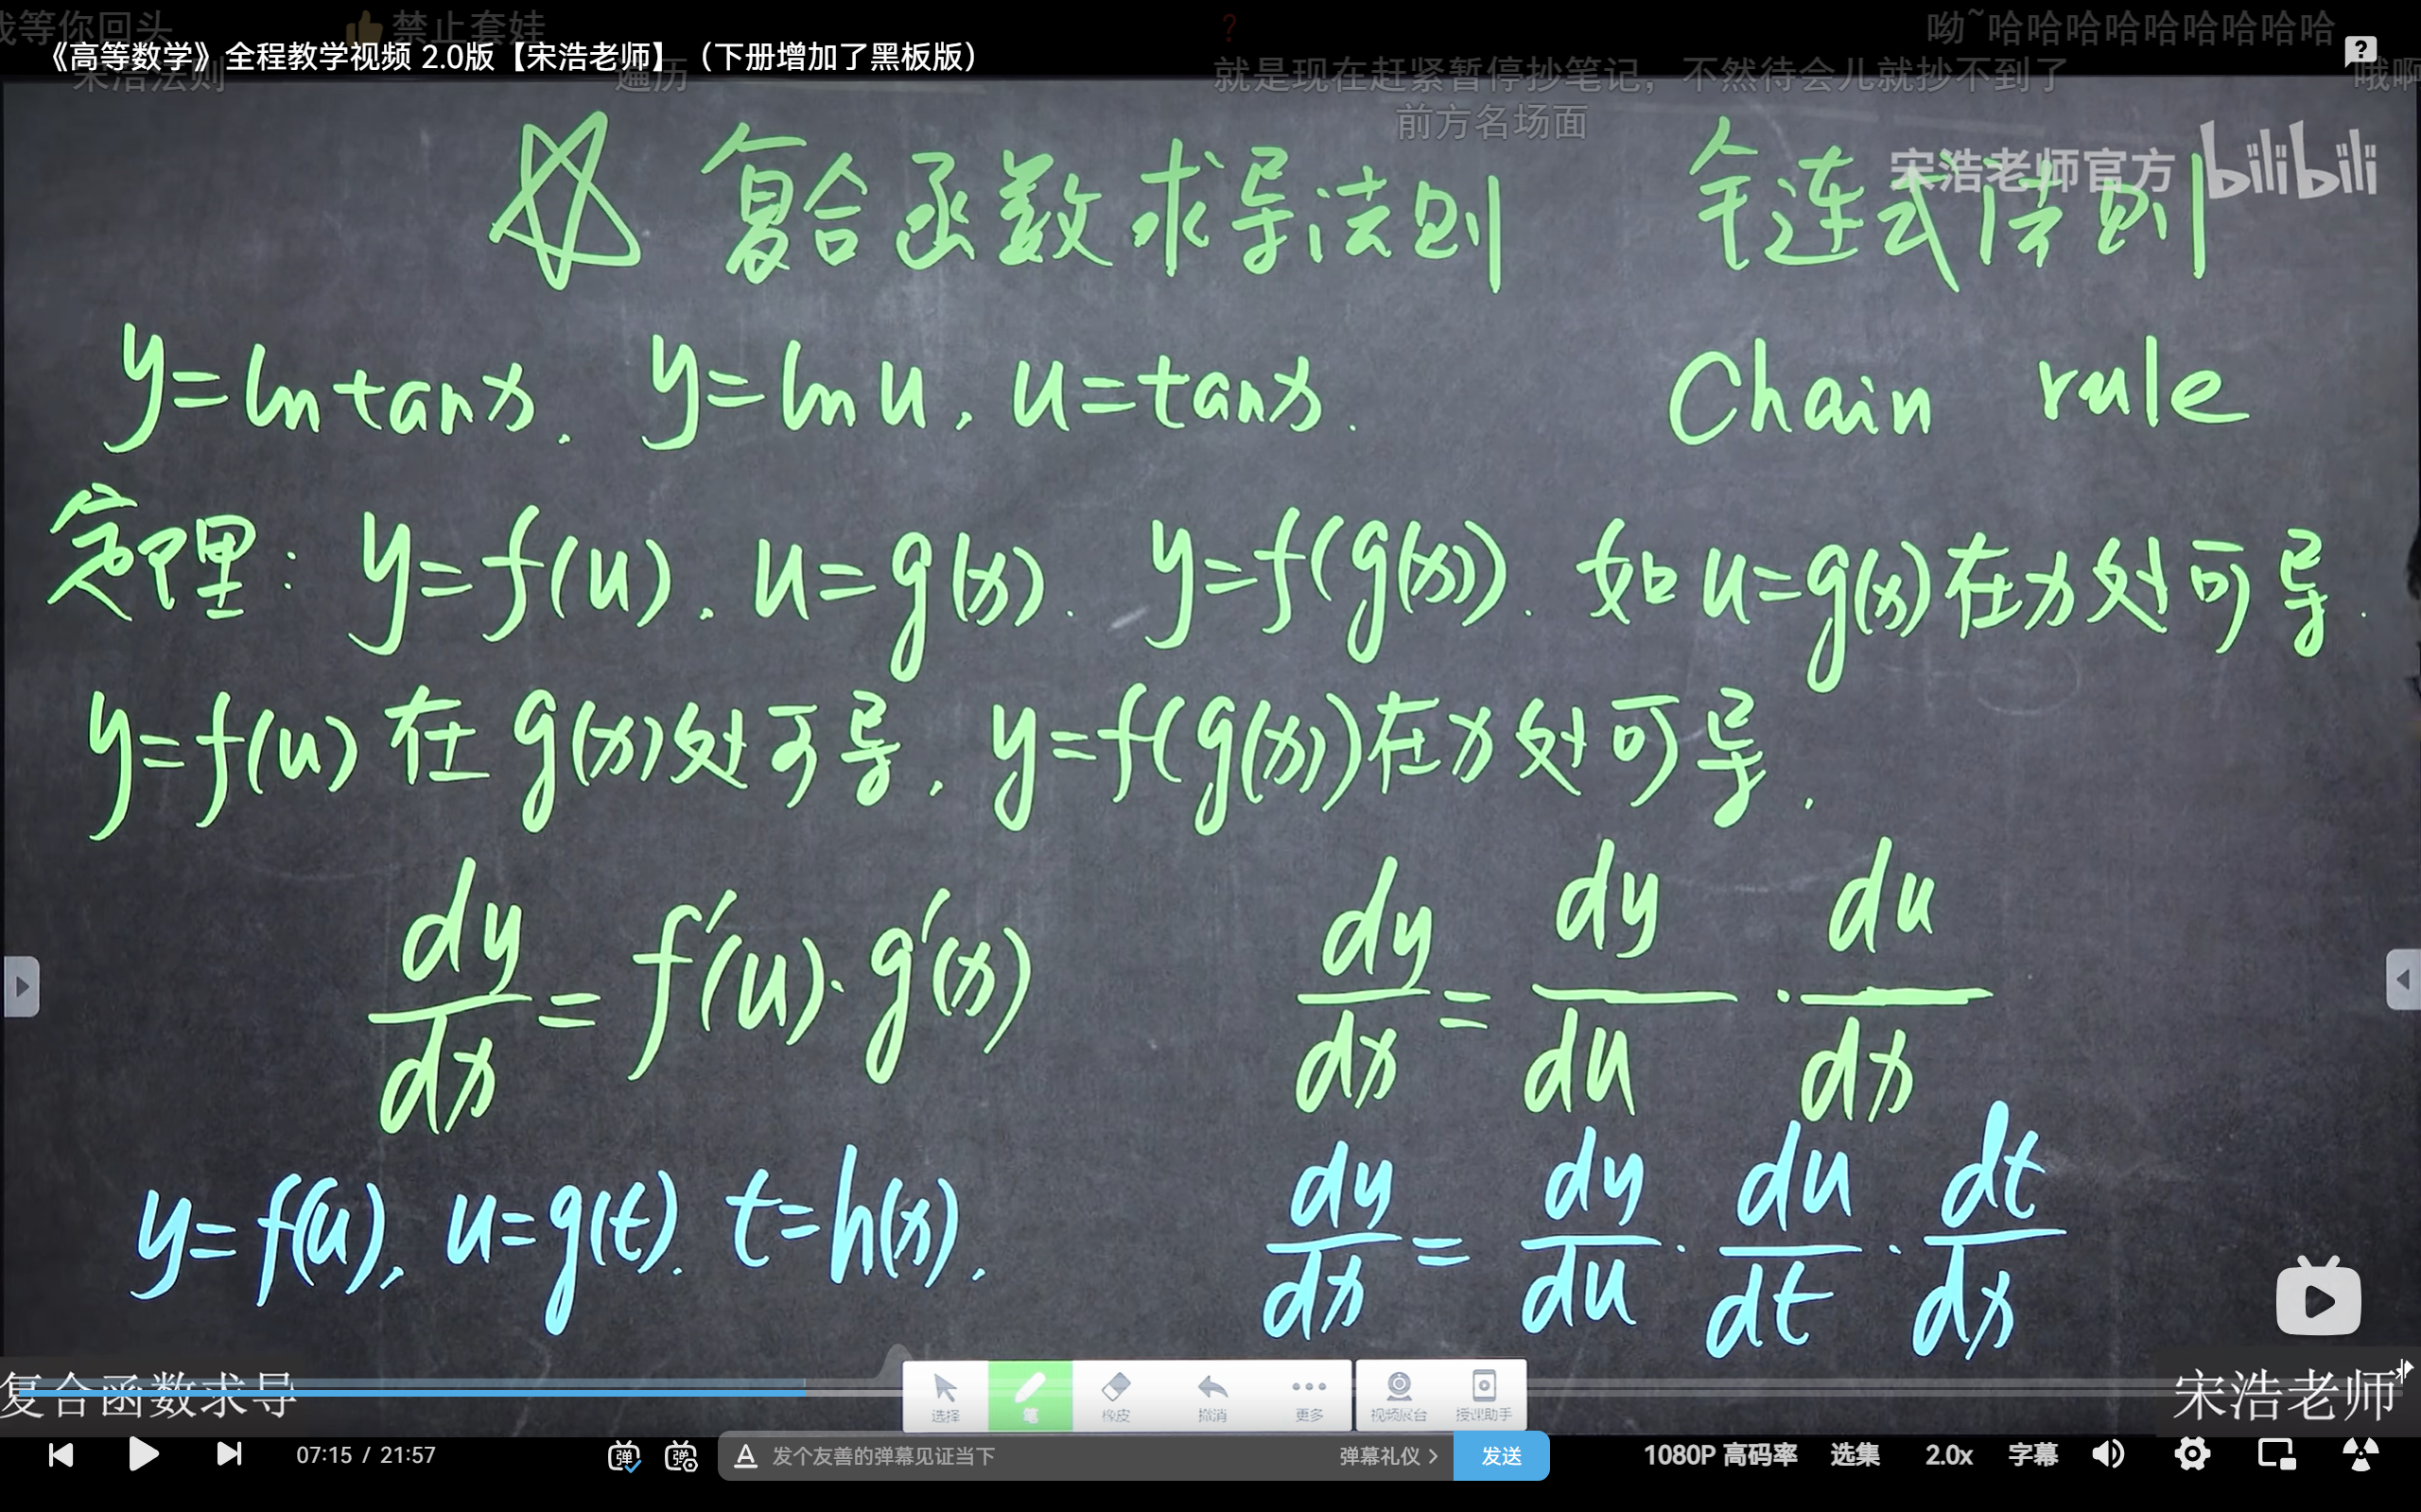 我等你回头
禁止套娃
?
呦~哈哈哈哈哈哈哈哈哈
《高等数学》全程教学视频 2.0版【宋浩老师】（下册增加了黑板版）
宋浩法则
遍历
就是现在赶紧暂停抄笔记，不然待会儿就抄不到了
哦啊
前方名场面
宋浩老师官方 bilibili
复合函数求导法则 全连式法则
y=lntanx. y=lnu, u=tanx. Chain rule
定理: y=f(u), u=g(x). y=f(g(x)). 如u=g(x)在x处可导.
y=f(u)在g(x)处可导, y=f(g(x))在x处可导.
dy/dx=f'(u)·g'(x) dy/dx=dy/du·du/dx
y=f(u), u=g(t). t=h(x). dy/dx=dy/du·du/dt·dt/dx
复合函数求导
选择 笔 橡皮 撤消 更多 视频展台 授课助手
宋浩老师
07:15 / 21:57 弹 弹 A 发个友善的弹幕见证当下 弹幕礼仪 > 发送 1080P 高码率 选集 2.0x 字幕